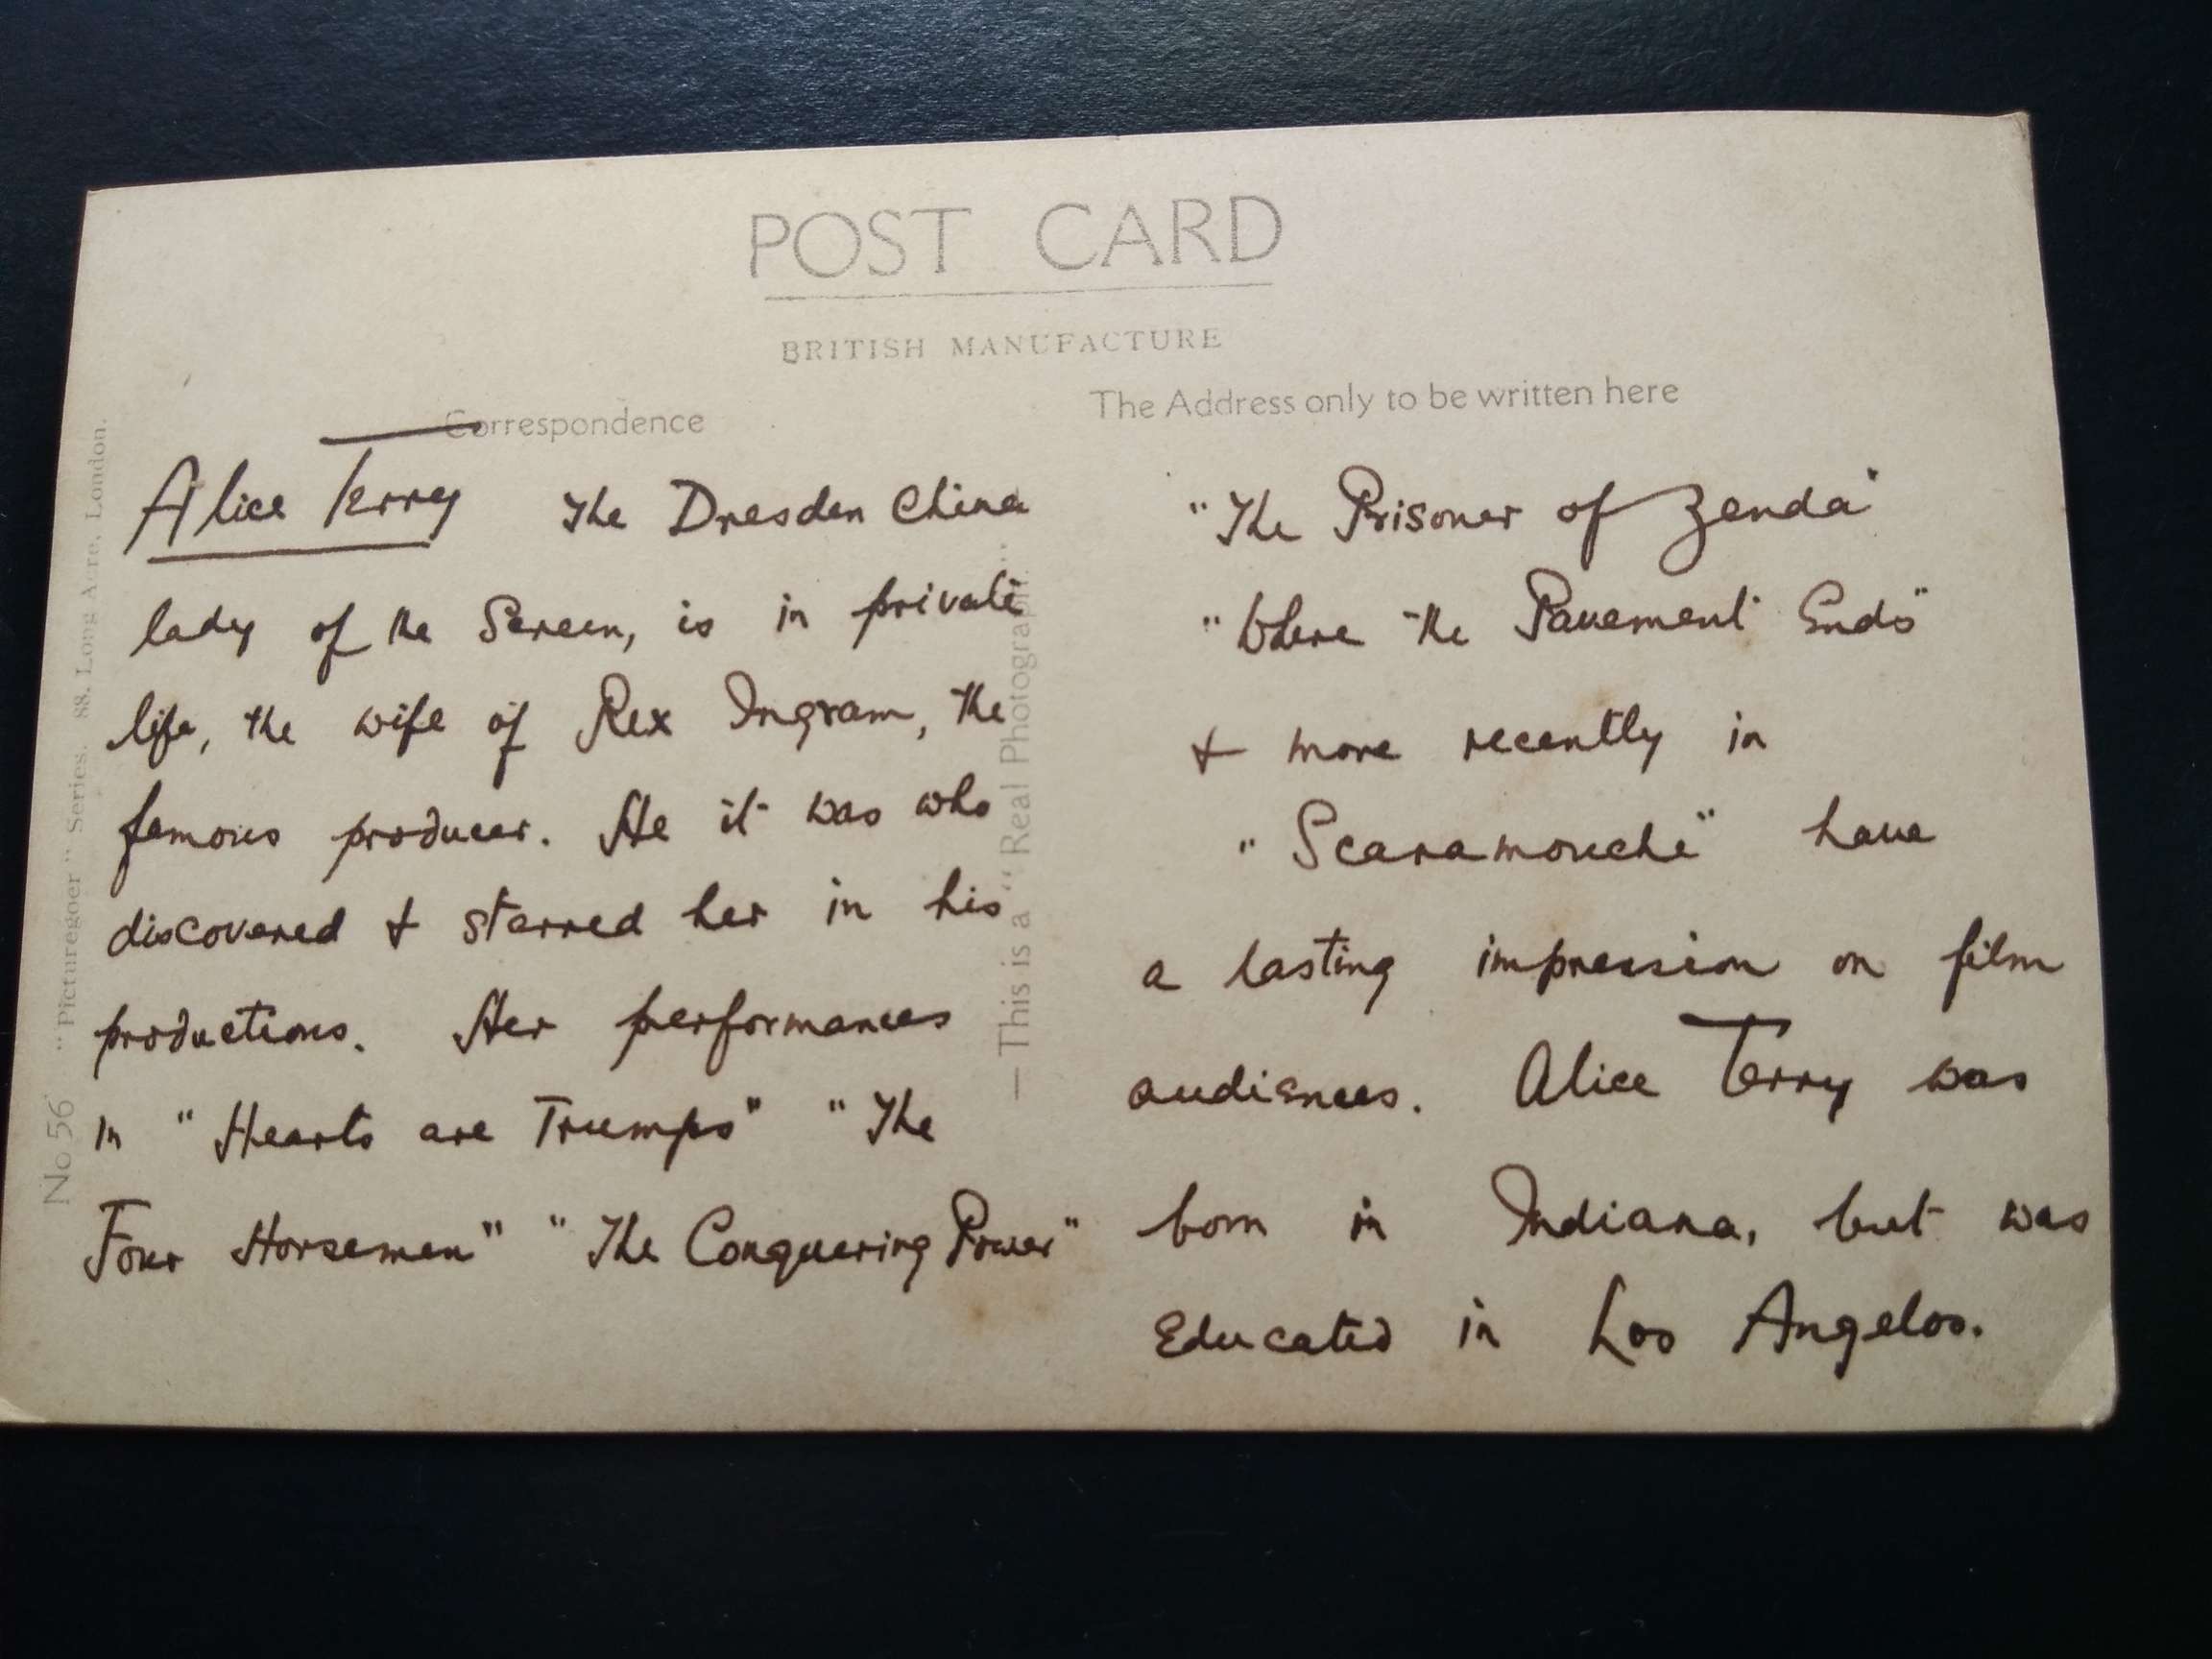 POST CARD
BRITISH MANUFACTURE
Correspondence
The Address only to be written here
Alice Terry The Dresden China
lady of the Screen, is in private
life, the wife of Rex Ingram, the
famous producer. He it was who
discovered & starred her in his
productions. Her performances
in "Hearts are Trumps" "The
Four Horsemen" "The Conquering Power"
"The Prisoner of Zenda"
"Where the Pavement Ends"
& more recently in
"Scaramouche" have
a lasting impression on film
audiences. Alice Terry was
born in Indiana, but was
Educated in Los Angelos.
No 56 "Picturegoer" Series. 88, Long Acre, London.
— This is a "Real Photograph."